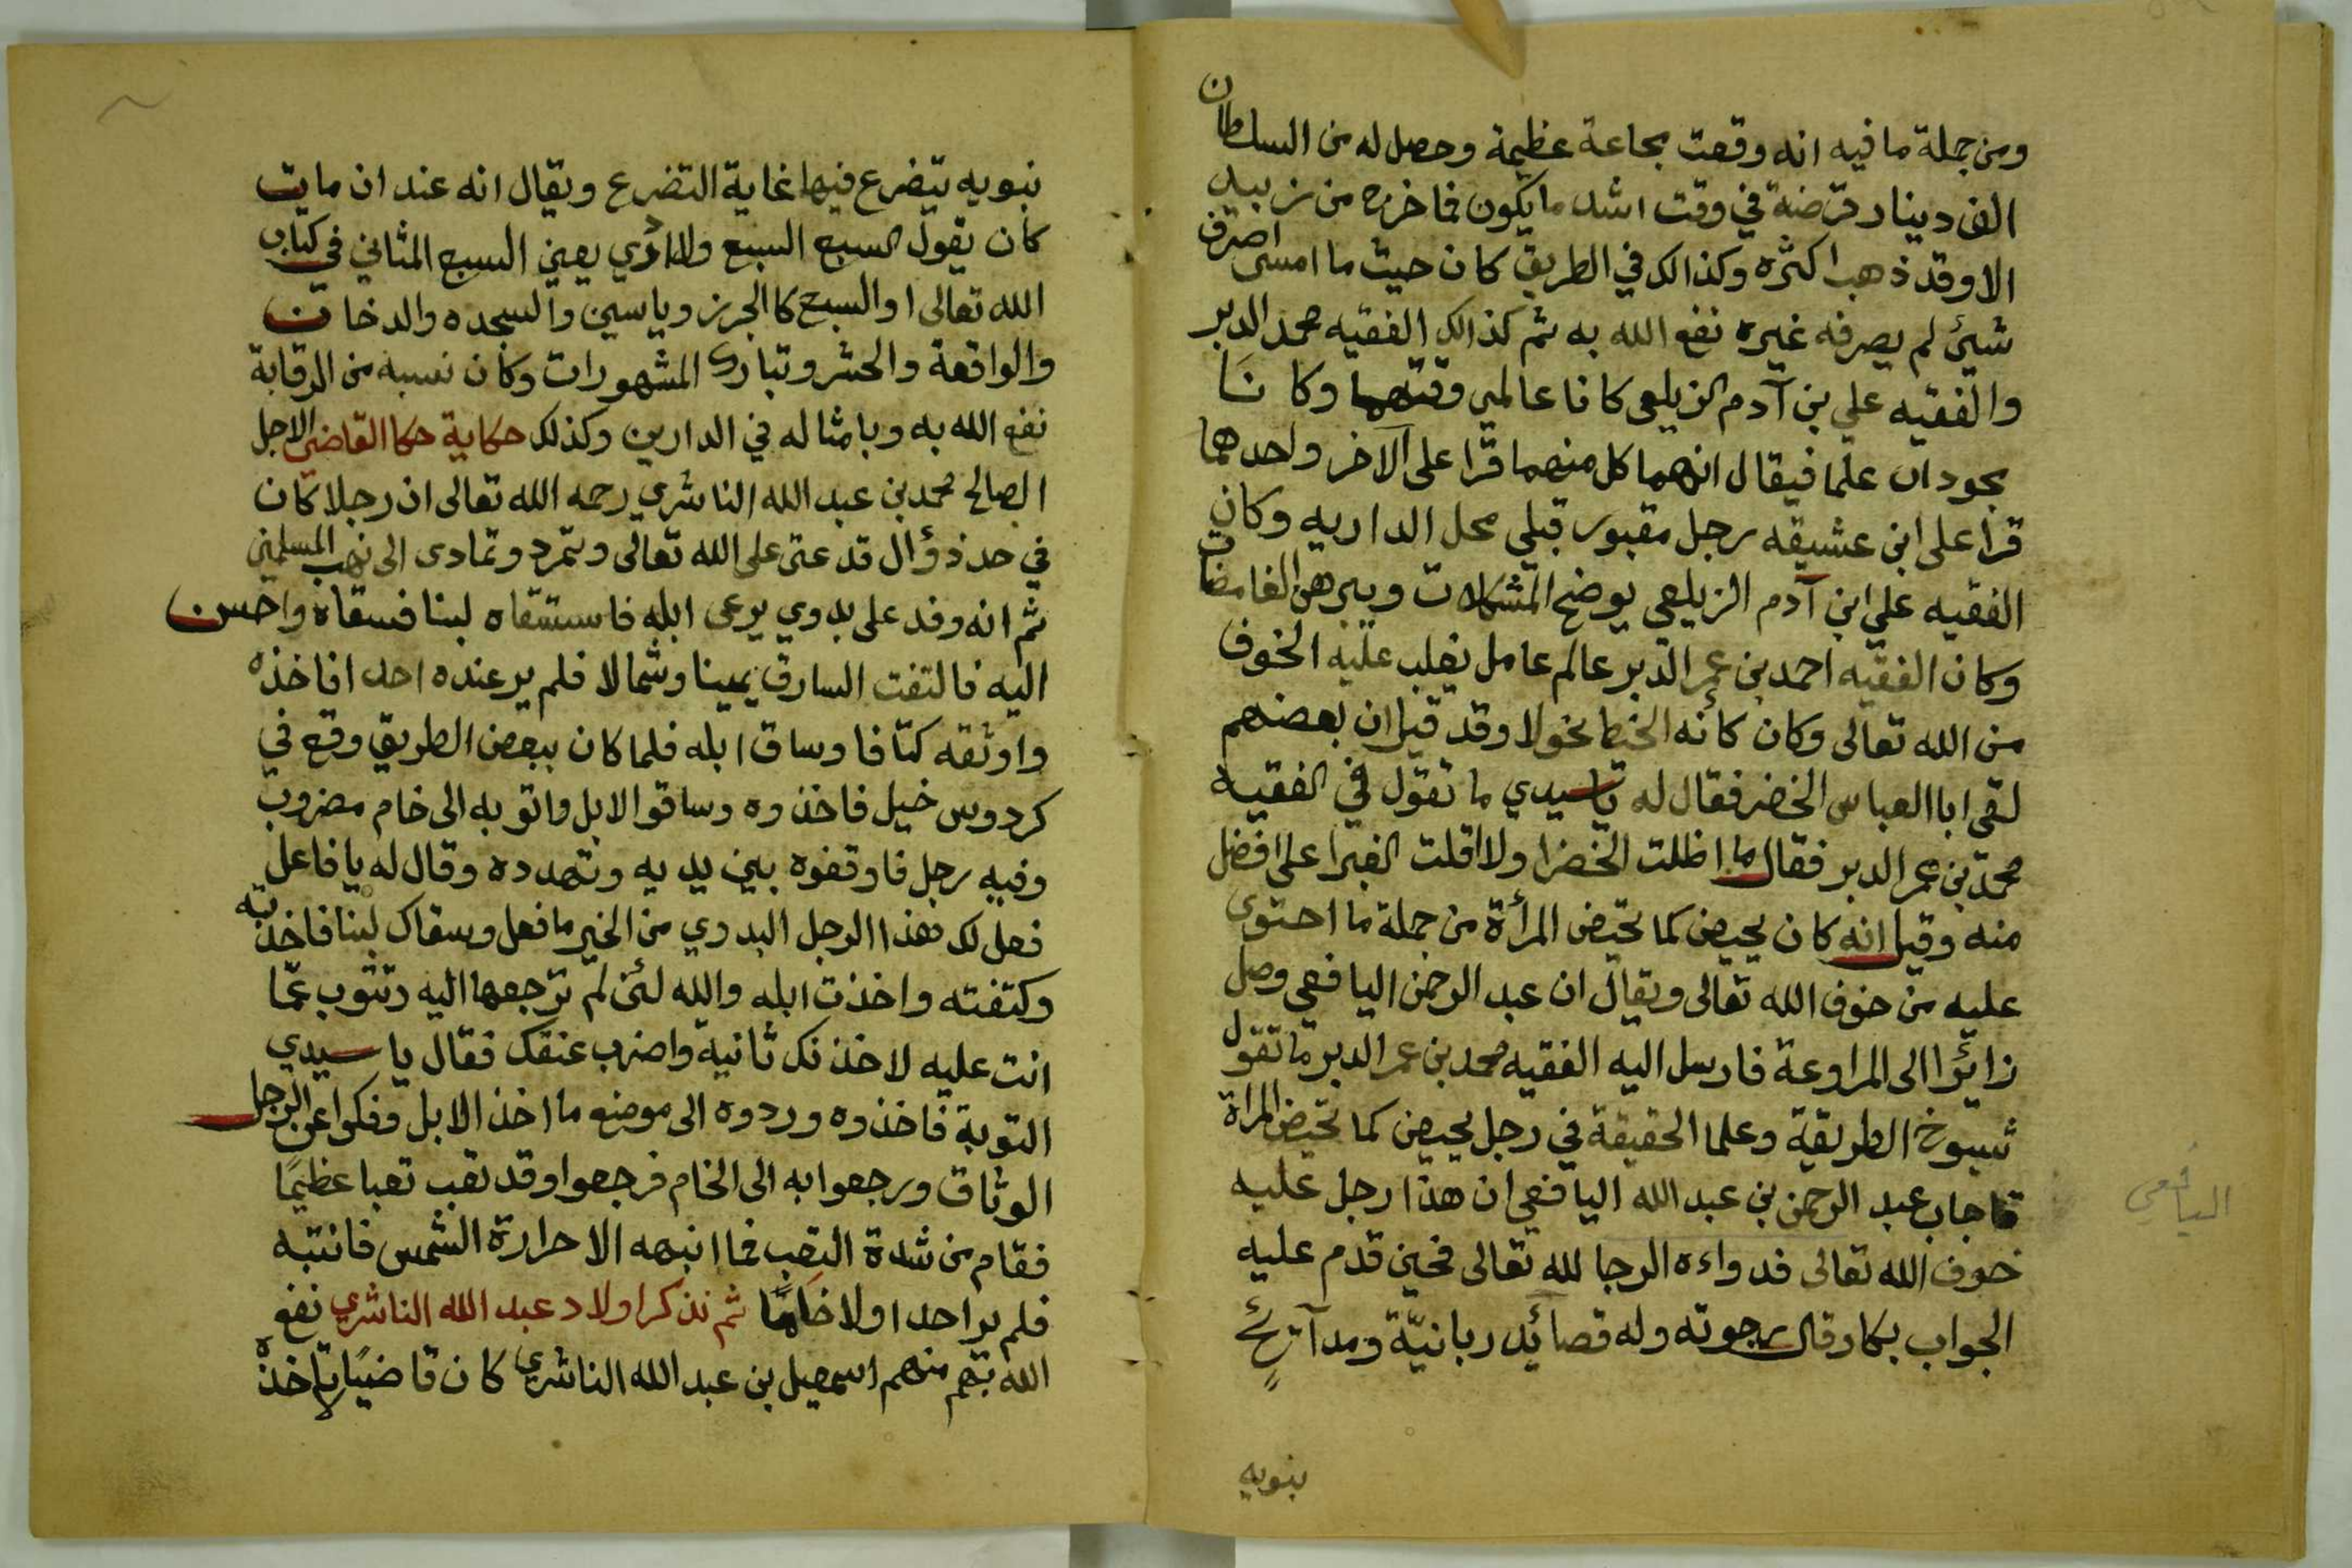 ومن جملة ما فيه انه وقعت مجاعة عظيمة وحصل له من السلطان
الف دينار قرضة في وقت اشد ما يكون فما خرج من زبيد
الا وقد ذهب اكثره وكذالك في الطريق كان حيث ما امسى اصرف
شيئ لم يصرفه غيره نفع الله به ثم كذالك الفقيه محمد الدبر
والفقيه علي بن آدم الزيلعي كانا عالمي وقتهما وكانا
يجودان علما فيقال انهما كل منهما قرا على الآخر واحدهما
قرا على ابن عشيقه رجل مقبور قبلي محل الداريه وكان
الفقيه علي ابن آدم الزيلعي يوضح المشكلات ويبرهن الغامضات
وكان الفقيه احمد بن عمر الدبر عالم عامل يغلب عليه الخوف
من الله تعالى وكان كانه الخيط نحولا وقد قيل ان بعضهم
لقي ابا العباس الخضر فقال له يا سيدي ما تقول في الفقيه
محمد بن عمر الدبر فقال ما اظلت الخضرا ولا اقلت الغبرا على افضل
منه وقيل انه كان يحيض كما تحيض المرأة من جملة ما احتوى
عليه من خوف الله تعالى ويقال ان عبد الرحمن اليافعي وصل
زائرا الى المراوعة فارسل اليه الفقيه محمد بن عمر الدبر ما تقول
شيوخ الطريقة وعلما الحقيقة في رجل يحيض كما تحيض المراة
فاجاب عبد الرحمن بن عبد الله اليافعي ان هذا رجل عليه
خوف الله تعالى فدواءه الرجا لله تعالى فحين قدم عليه
الجواب بكا وقال رجوته وله قصائد ربانيّة ومدآئح
بنويه
اليافعي
نبويه يتضرع فيها غاية التضرع ويقال انه عند ان مات
كان يقول السبع السبع يعني السبع المثاني في كتاب
الله تعالى او السبع كالجرز وياسين والسجده والدخان
والواقعة والحشر وتبارك المشهورات وكان نسبه من الرقابة
نفع الله به وبامثاله في الدارين وكذلك حكاية حكا القاضي الاجل
الصالح محمد بن عبد الله الناشري رحمه الله تعالى ان رجلا كان
في حد ذؤال قد عتى على الله تعالى وتمرد وتمادى الى نهب المسلمين
ثم انه وفد على بدوي يرعى ابله فاستسقاه لبنا فسقاه واحسن
اليه فالتفت السارق يمينا وشمالا فلم ير عنده احدا فاخذه
واوثقه كتافا وساق ابله فلما كان ببعض الطريق وقع في
كردوس خيل فاخذوه وساقوا الابل واتو به الى خام مضروب
وفيه رجل فاوقفوه بين يديه وتهدده وقال له يا فاعل
فعل لك هذا الرجل البدوي من الخير ما فعل وسقاك لبنا فاخذته
وكتفته واخذت ابله والله لئن لم ترجعها اليه وتتوب عمّا
انت عليه لاخذنك ثانية واضرب عنقك فقال يا سيدي
التوبة فاخذوه وردوه الى موضع ما اخذ الابل وفكوا عن الرجل
الوثاق ورجعوا به الى الخام فرجعوا وقد تعب تعبا عظيمًا
فقام من شدة التعب فما انبهه الا حرارة الشمس فانتبه
فلم ير احدا ولا خامًا ثم نذكر اولاد عبد الله الناشري نفع
الله بهم منهم اسمعيل بن عبد الله الناشري كان قاضيًا لا تاخذه